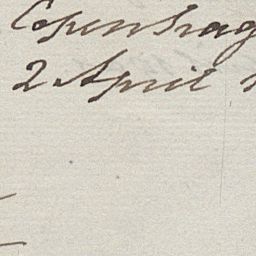 Copenhag
2 April